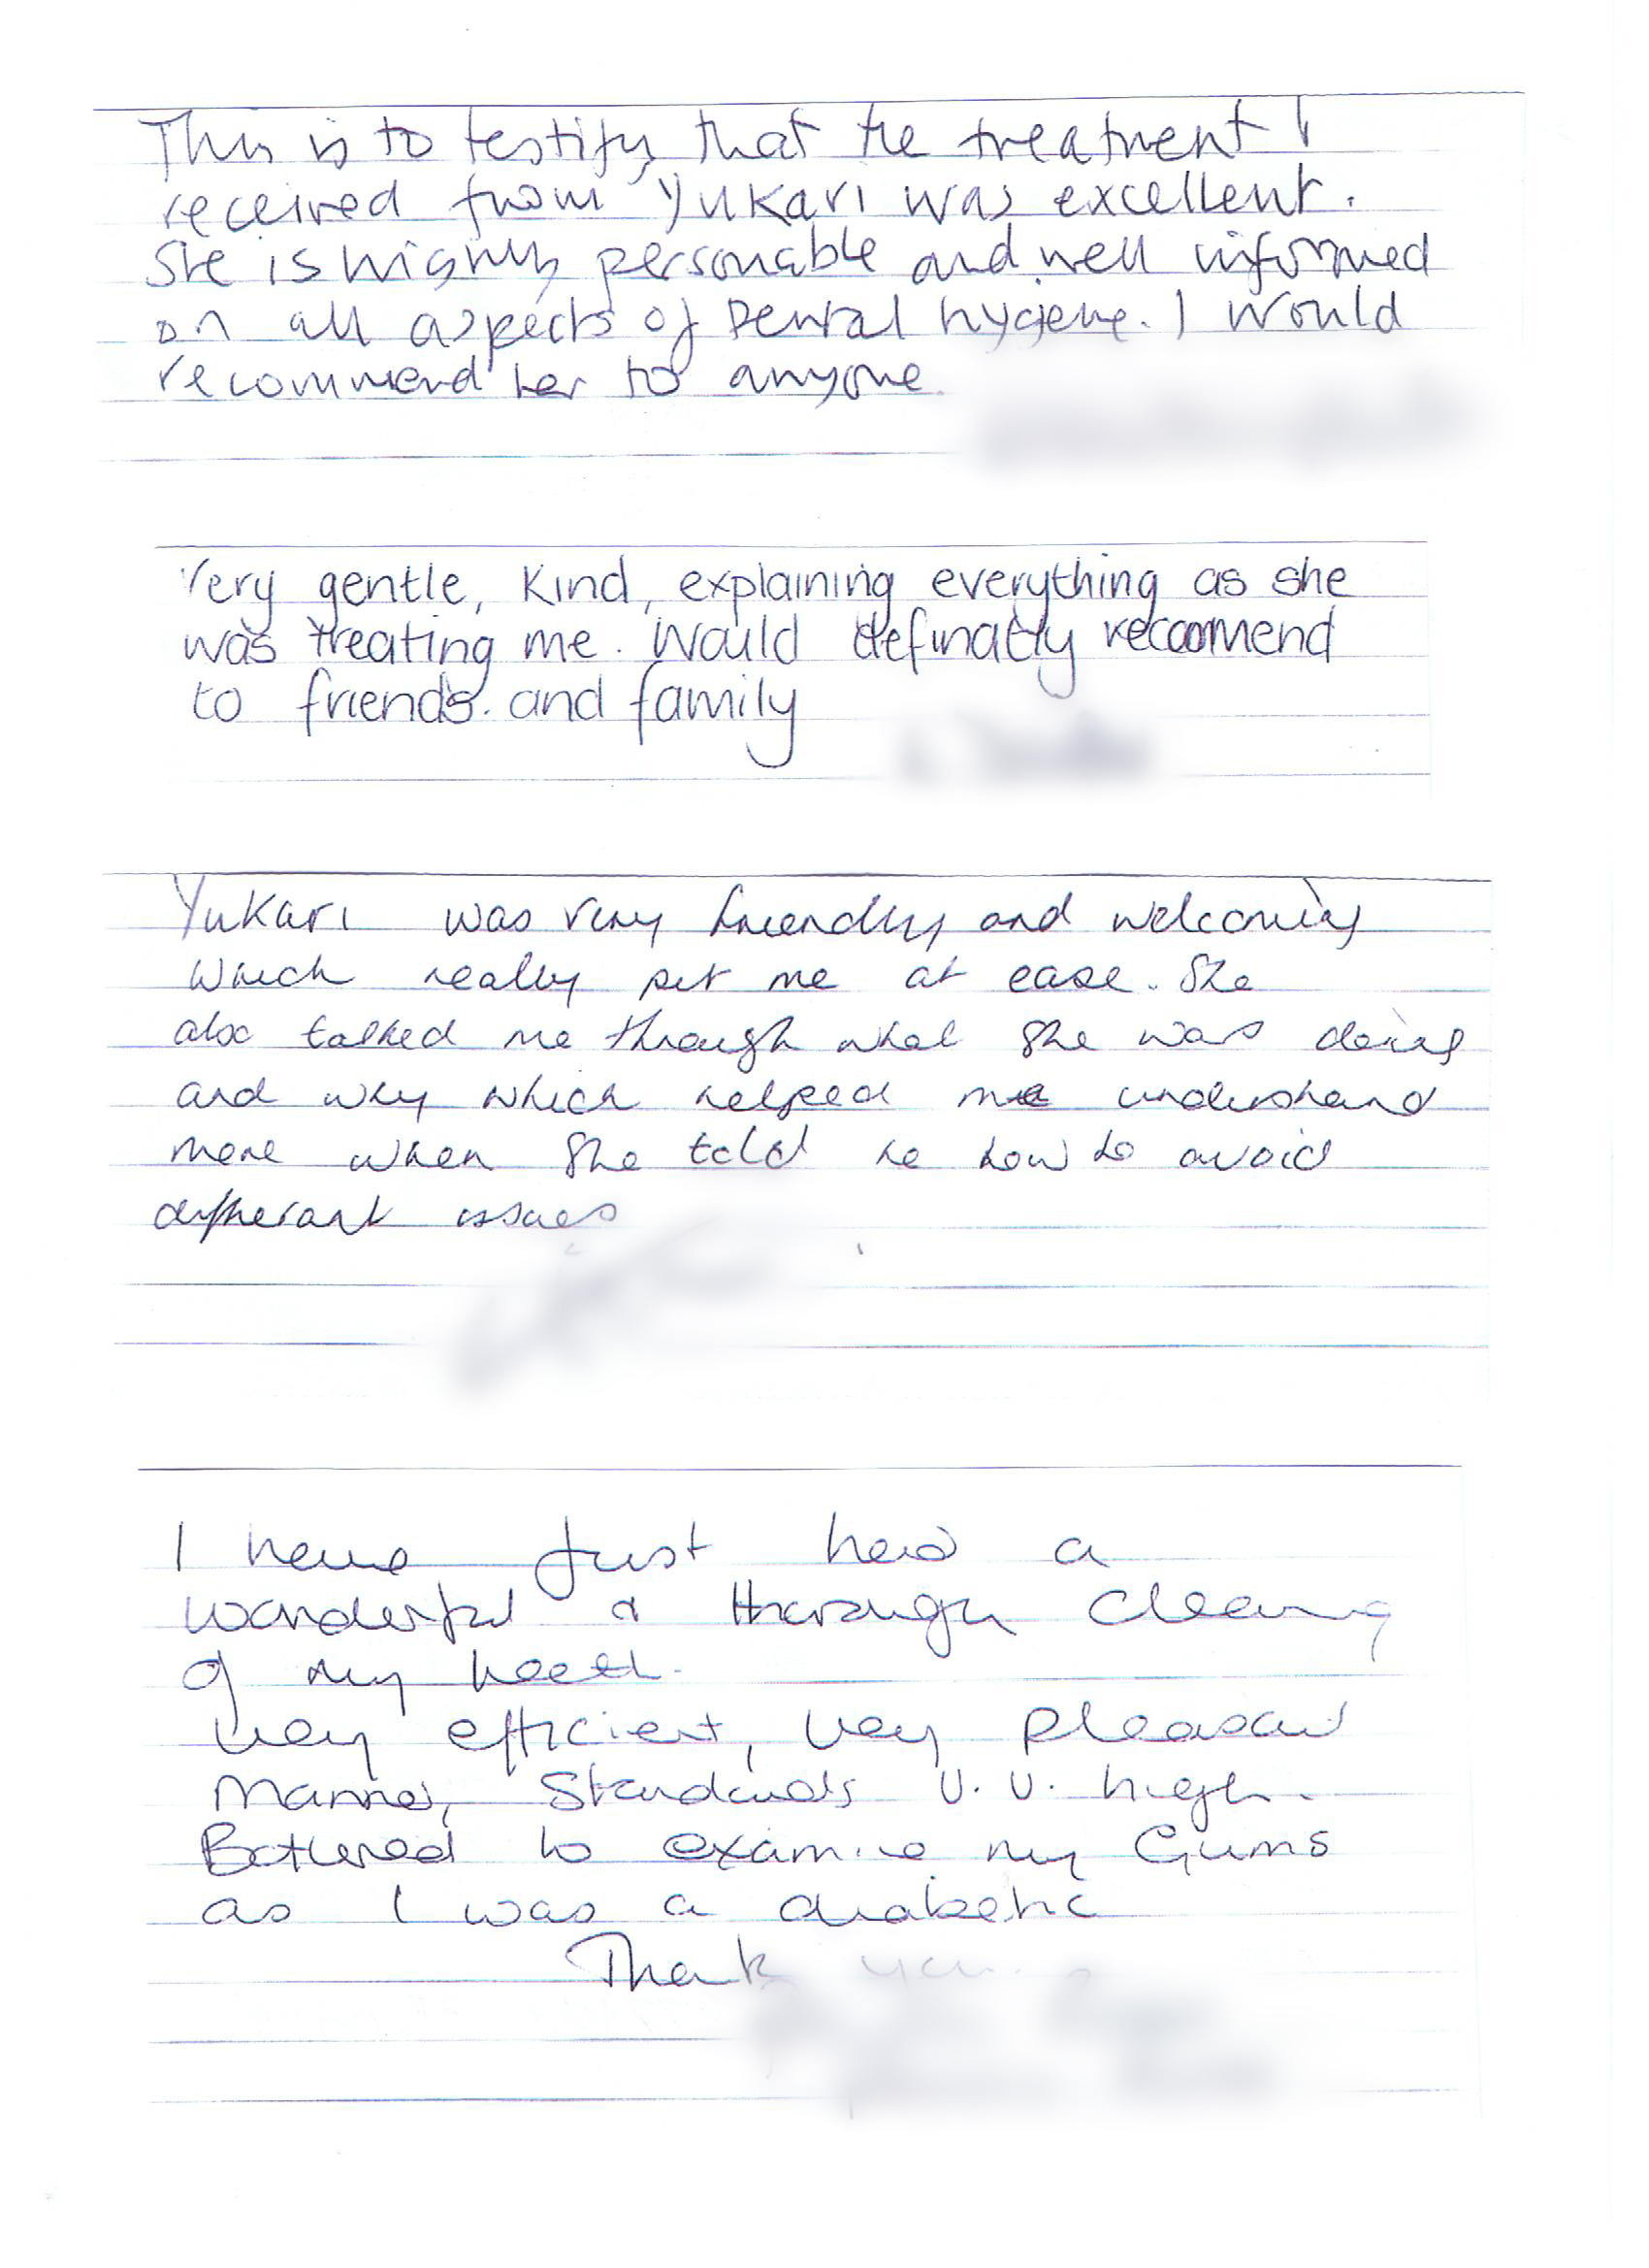 This is to testify that the treatment I
received from Yukari was excellent.
She is highly personable and well informed
on all aspects of Dental hygiene. I would
recommend her to anyone.
Very gentle, kind, explaining everything as she
was treating me. Would definatly recommend
to friends. and family
Yukari was very friendly and welcoming
which really put me at ease. She
also talked me through what she was doing
and why which helped me understand
more when she told me how to avoid
differant issues
I have just had a
wonderful & thorough cleaning
of my teeth.
Very efficient, very pleasant
manner, Standards v.v. high.
Bothered to examine my Gums
as I was a diabetic
Thank you.